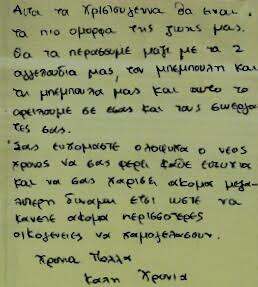 Αυτα τα Χριστουγεννα θα ειναι
τα πιο ομορφα της ζωης μας.
θα τα περασουμε μαζι με τα 2
αγγελουδια μας, τον μπεμπουλη και
τη μπεμπουλα μας και αυτο το
οφειλουμε σε εσας και τους συνεργα
τες σας.
Σας ευχομαστε ολοψυχα ο νεος
χρονος να σας φερει καθε ευτυχια
και να σας χαρισει ακομα μεγα-
λυτερη δυναμη ετσι ωστε να
κανετε ακομα περισσοτερες
οικογενειες να χαμογελασουν.
Χρονια Πολλα
Καλη Χρονια